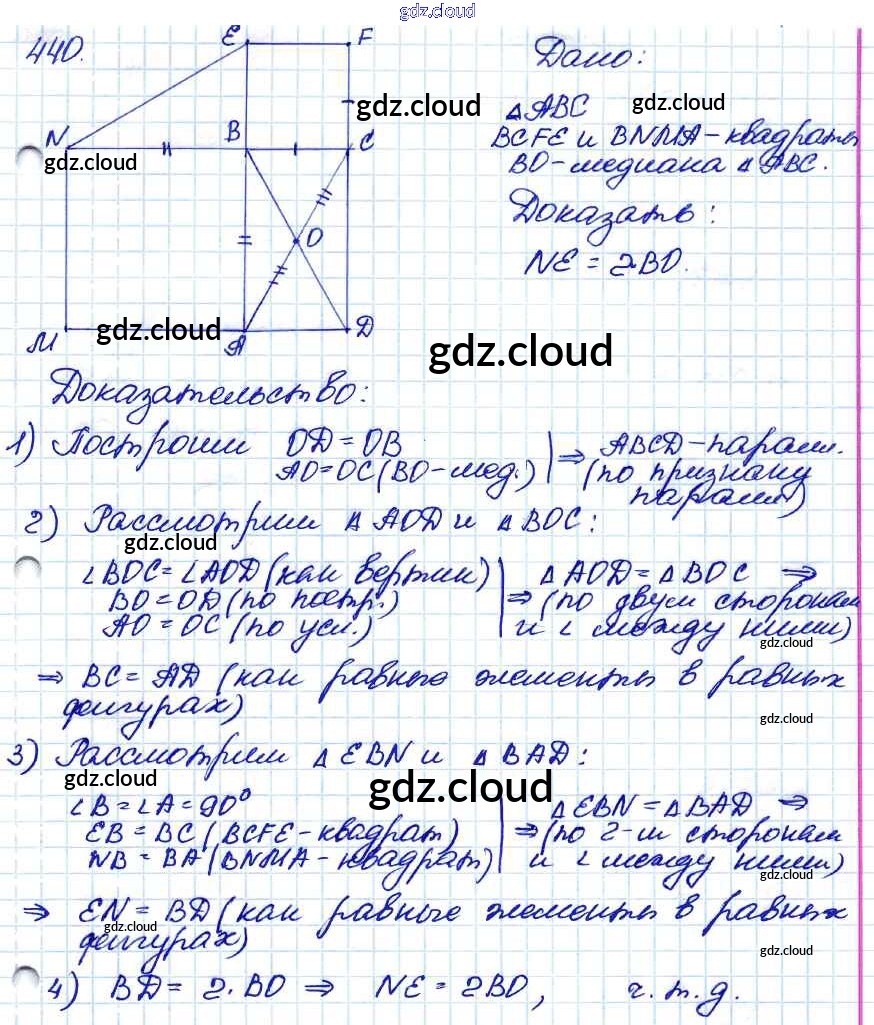 gdz.cloud
440.
E F
Дано:
gdz.cloud
△ABC
gdz.cloud
N B C
BCFE и BNMA - квадраты
gdz.cloud
BO - медиана △ABC.
Доказать:
O
NE = 2BO.
gdz.cloud
M A D
gdz.cloud
Доказательство:
1) Построим OD = OB
AO = OC (BO - мед.) | ⇒ ABCD - парал.
(по признаку
парал.)
2) Рассмотрим △AOD и △BOC:
gdz.cloud
∠BOC = ∠AOD (как вертик)
BO = OD (по постр.)
AO = OC (по усл.)
△AOD = △BOC ⇒
⇒ (по двум сторонам
и ∠ между ними)
gdz.cloud
⇒ BC = AD (как равные элементы в равных
фигурах)
gdz.cloud
3) Рассмотрим △EBN и △BAD:
gdz.cloud
gdz.cloud
∠B = ∠A = 90°
EB = BC (BCFE - квадрат)
NB = BA (BNMA - квадрат)
△EBN = △BAD ⇒
⇒ (по 2-м сторонам
и ∠ между ними)
gdz.cloud
⇒ EN = BD (как равные элементы в равных
фигурах)
gdz.cloud
gdz.cloud
4) BD = 2·BO ⇒ NE = 2BO, ч.т.д.